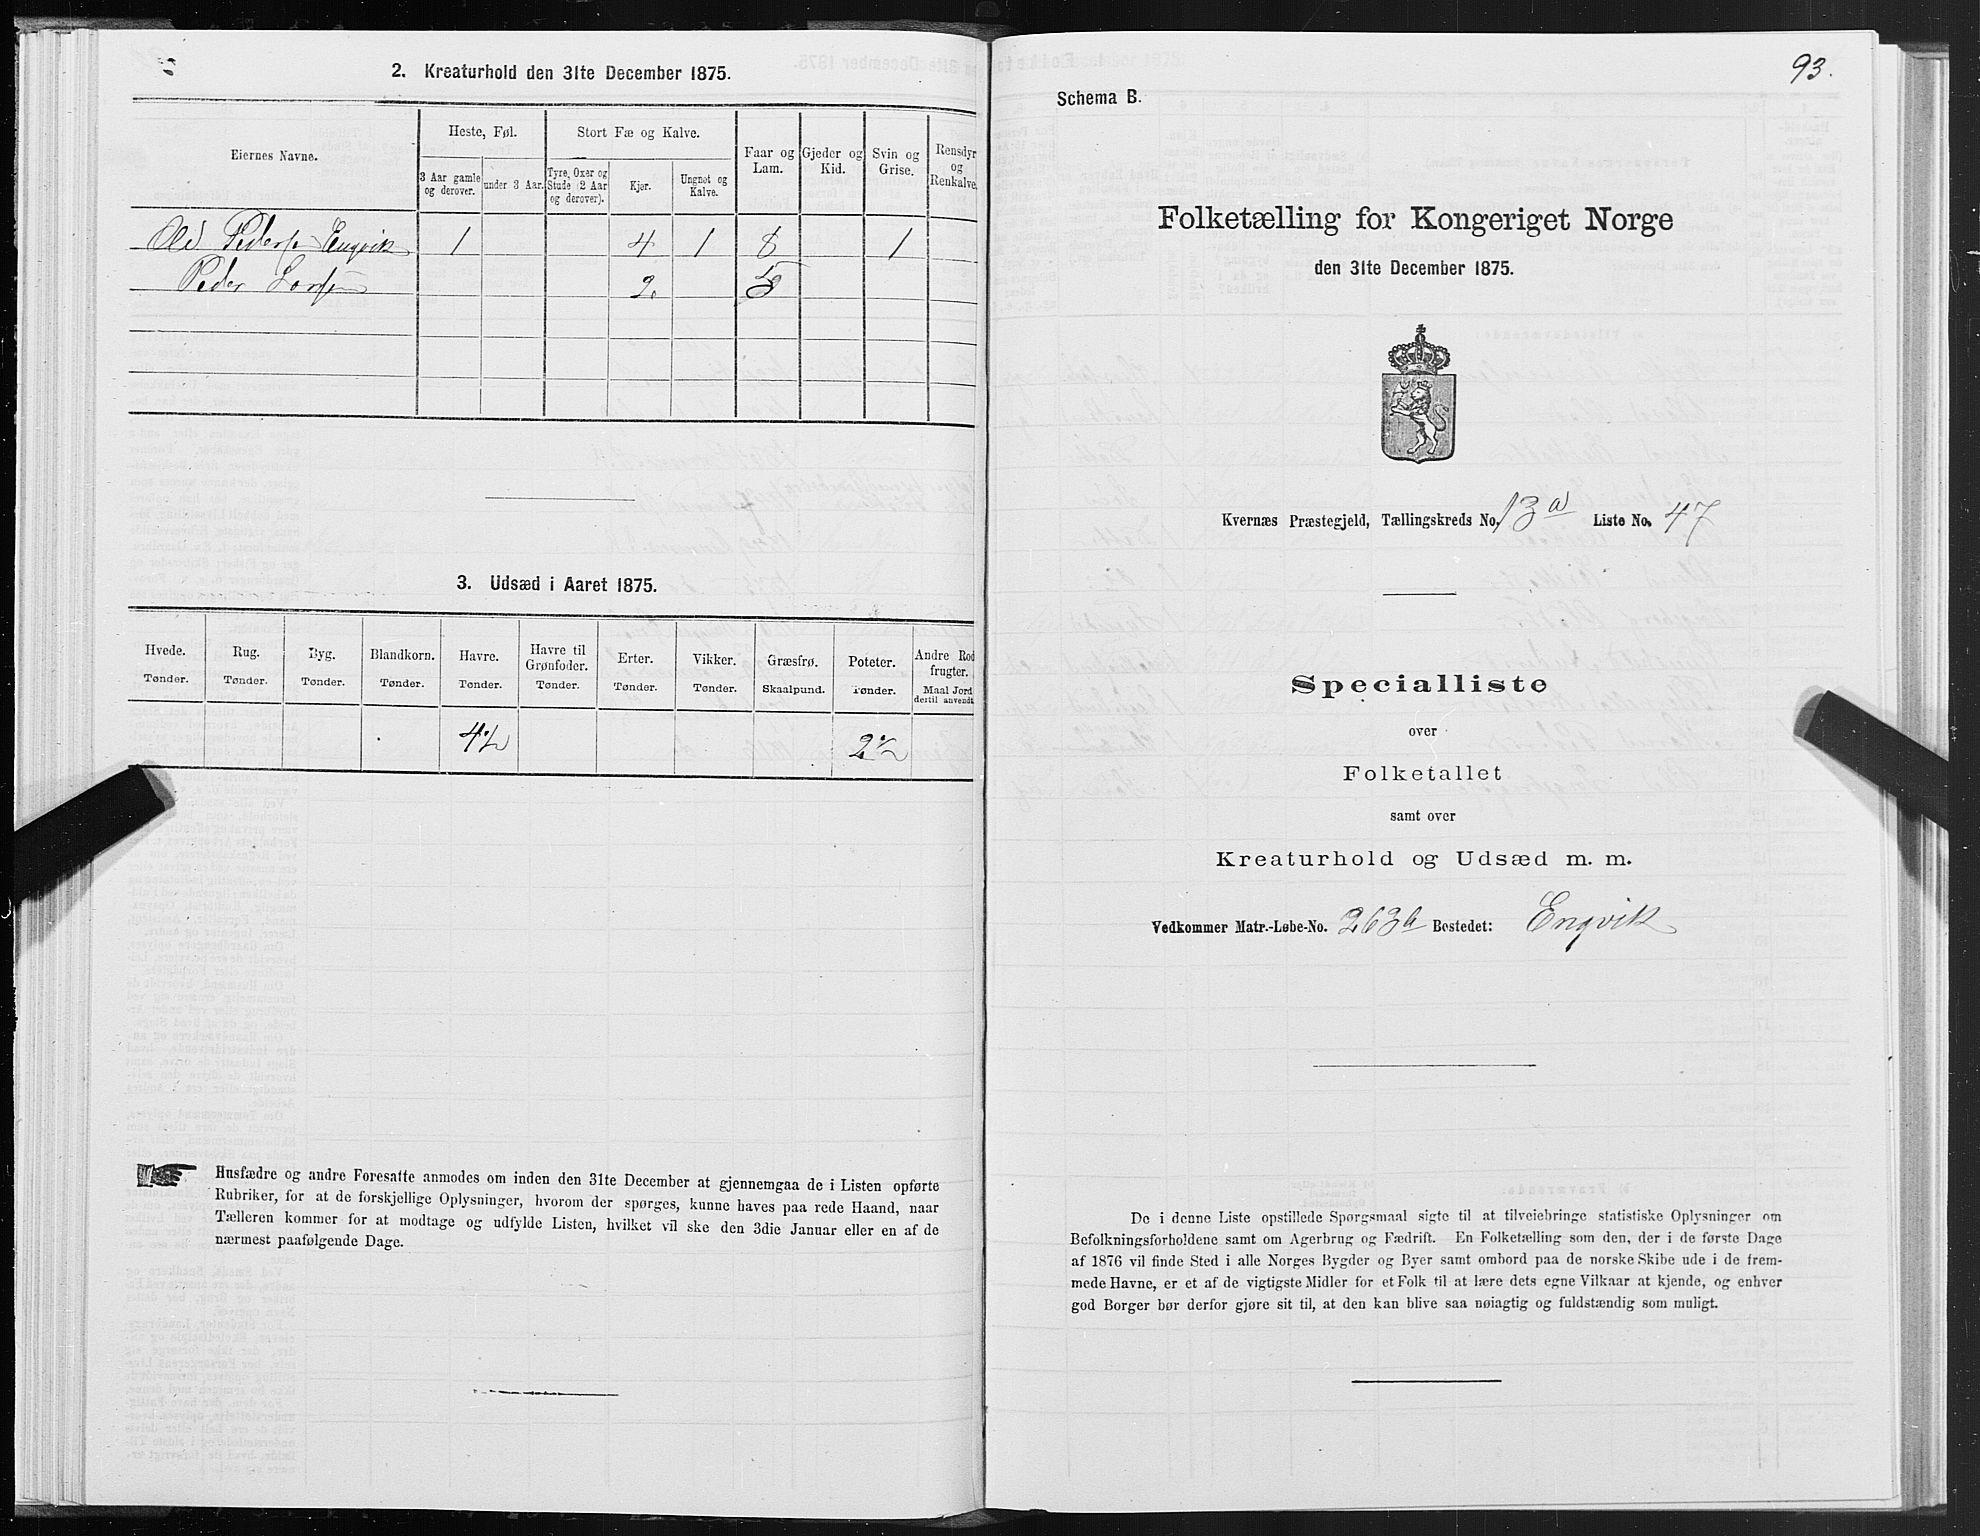 2. Kreaturhold den 31te December 1875.
Eiernes Navne.
Heste, Føl.
Stort Fæ og Kalve.
Faar og Lam.
Gjeder og Kid.
Svin og Grise.
Rensdyr og Renkalve.
3 Aar gamle og derover.
under 3 Aar.
Tyre, Oxer og Stude (2 Aar og derover).
Kjør.
Ungnøt og Kalve.
Pedersen Engvik 1 4 1 8 1
Peder 2
3. Udsæd i Aaret 1875.
Hvede. Rug. Byg. Blandkorn. Havre. Havre til Grønfoder. Erter. Vikker. Græsfrø. Poteter. Andre Rodfrugter.
Tønder. Tønder. Tønder. Tønder. Tønder. Tønder. Tønder. Tønder. Skaalpund. Tønder. Maal Jord dertil anvendt.
4½ 2½
Husfædre og andre Foresatte anmodes om inden den 31te December at gjennemgaa de i Listen opførte
Rubriker, for at de forskjellige Oplysninger, hvorom der spørges, kunne haves paa rede Haand, naar
Tælleren kommer for at modtage og udfylde Listen, hvilket vil ske den 3die Januar eller en af de
nærmest paafølgende Dage.
93.
Schema B.
Folketælling for Kongeriget Norge
den 31te December 1875.
Kvernæs Præstegjeld, Tællingskreds No. 13a Liste No. 47
Specialliste
over
Folketallet
samt over
Kreaturhold og Udsæd m. m.
Vedkommer Matr.-Løbe-No. 263a Bostedet: Engvik
De i denne Liste opstillede Spørgsmaal sigte til at tilveiebringe statistiske Oplysninger om
Befolkningsforholdene samt om Agerbrug og Fædrift. En Folketælling som den, der i de første Dage
af 1876 vil finde Sted i alle Norges Bygder og Byer samt ombord paa de norske Skibe ude i de frem-
mede Havne, er et af de vigtigste Midler for et Folk til at lære dets egne Vilkaar at kjende, og enhver
god Borger bør derfor gjøre sit til, at den kan blive saa nøiagtig og fuldstændig som muligt.